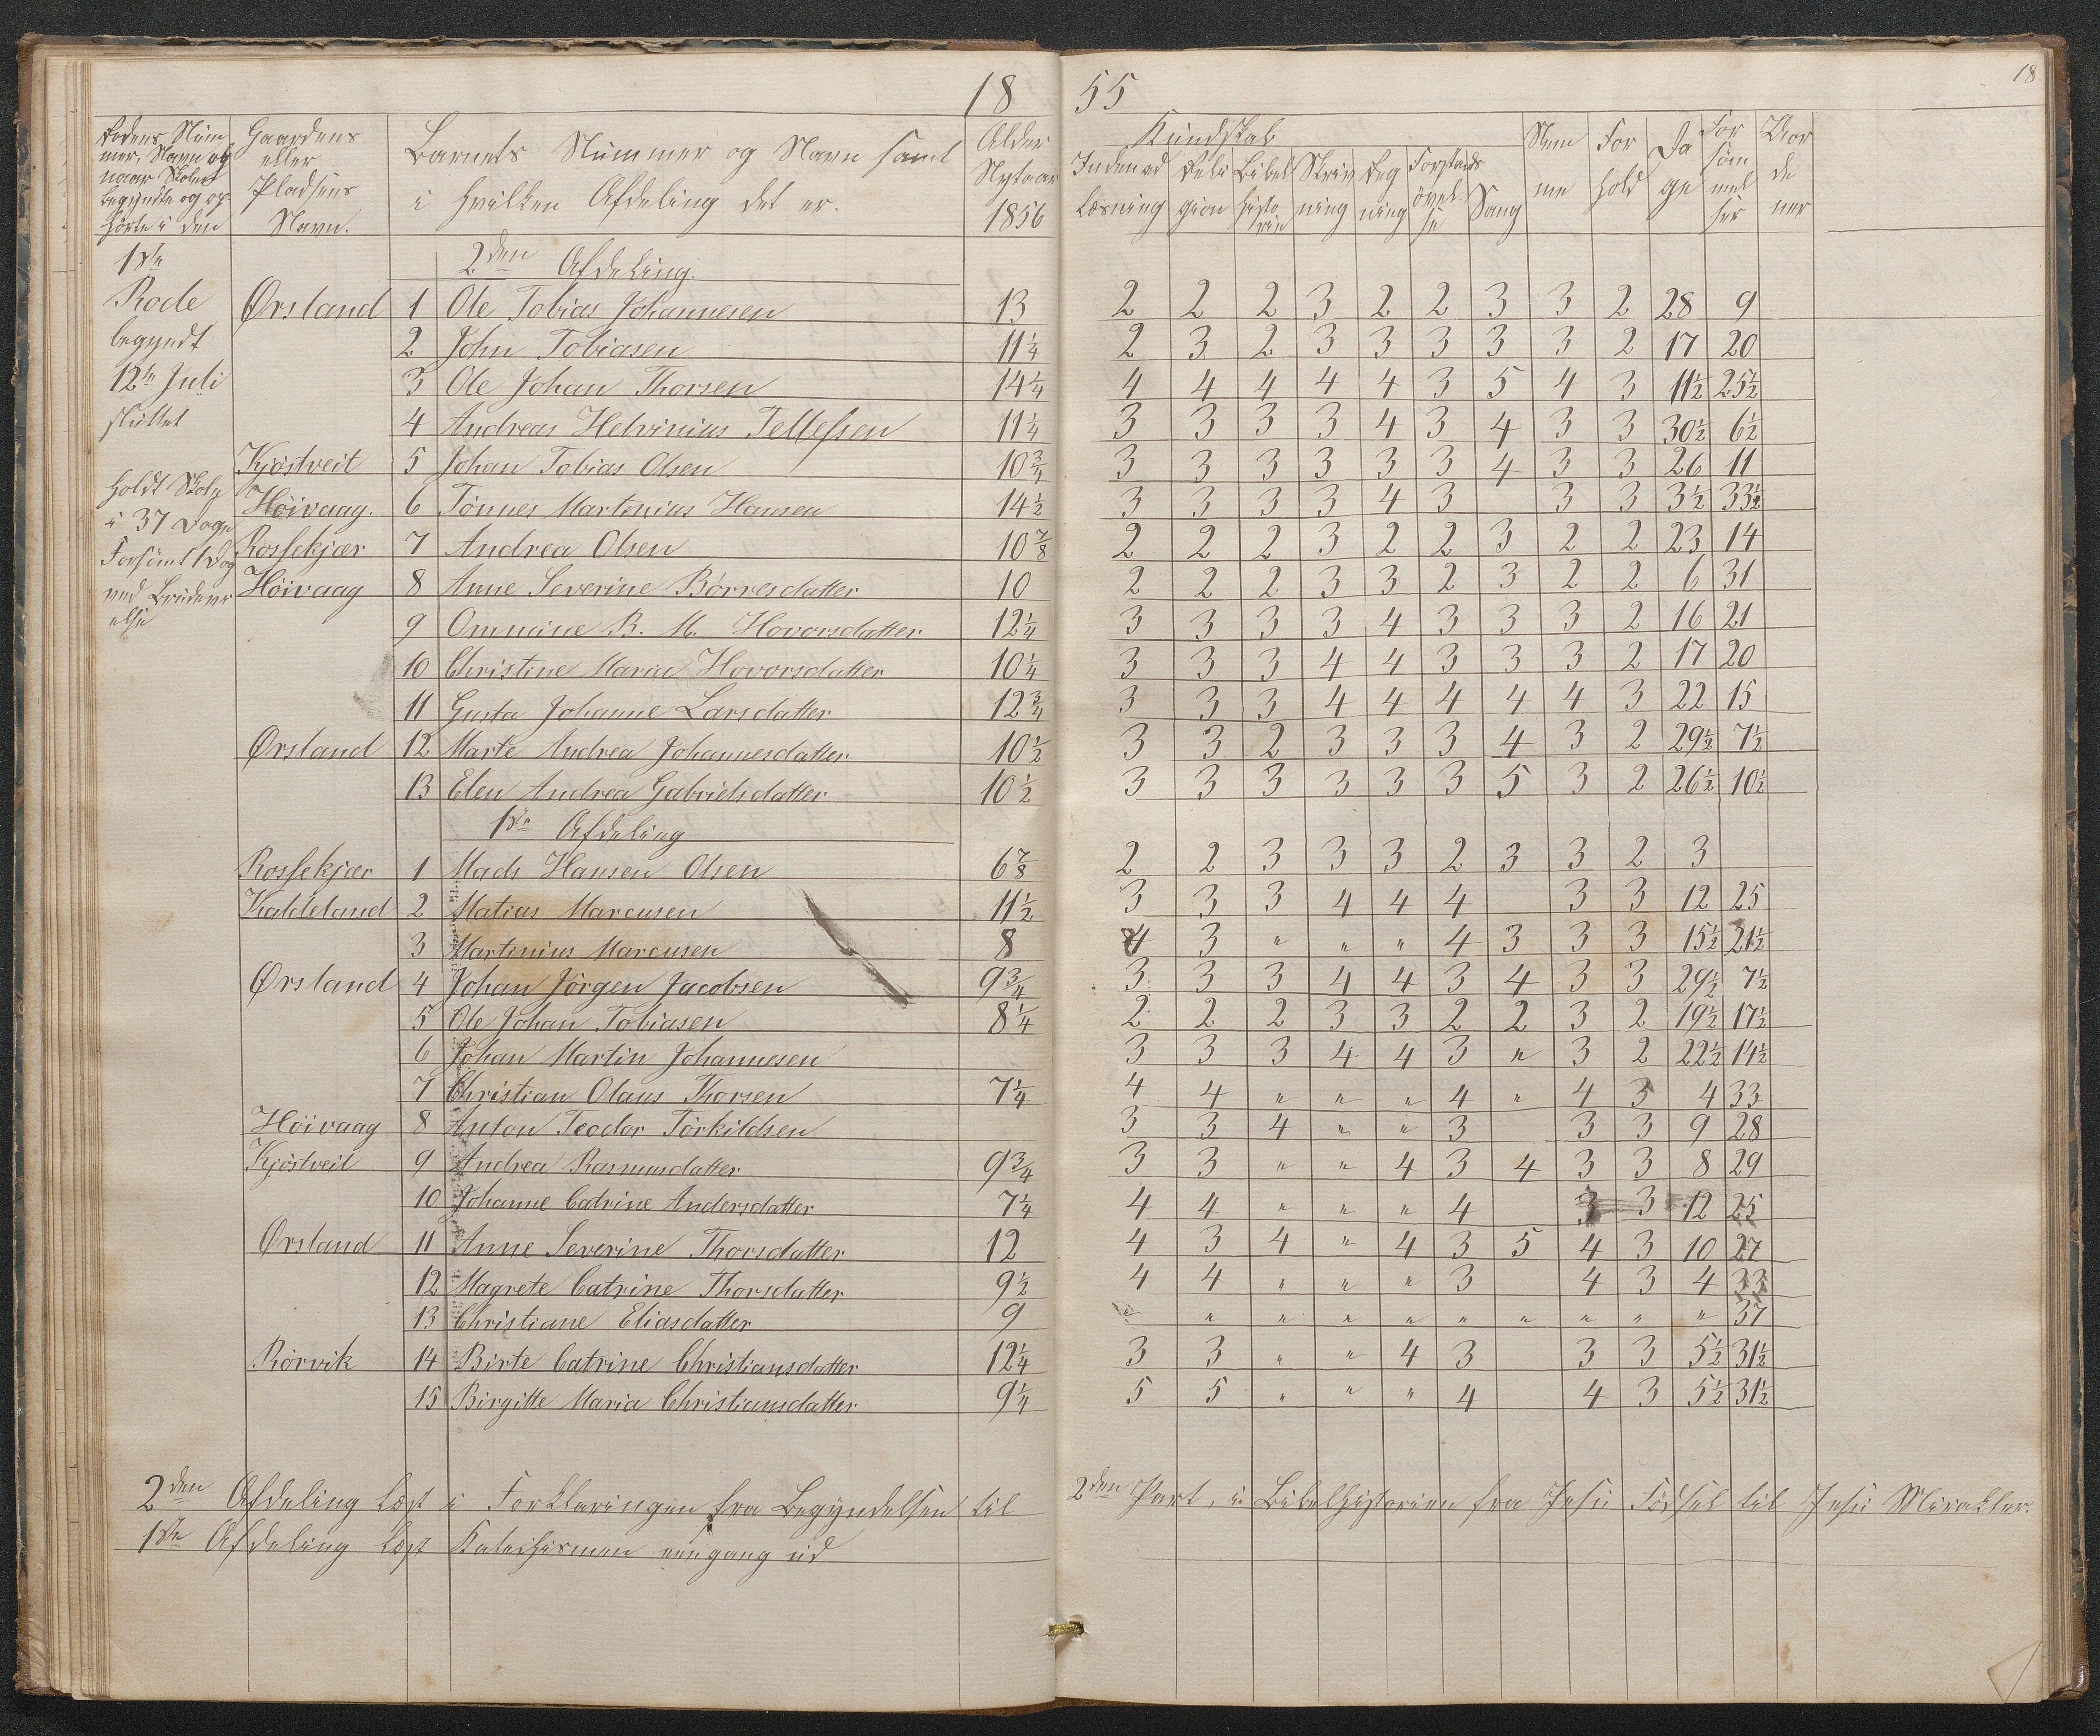 18 55
18
Rodens Num
mer, Navn og
naar Skolen
begyndte og op
hørte i den
Gaardens
eller
Pladsens
Navn.
Barnets Nummer og Navn samt
i hvilken Afdeling det er.
Alder
Nytaar
1856
Kundskab
Indenad
Læsning
Reli
gion
Bibel
histo
rie
Skriv
ning
Reg
ning
Forstands
øvel
se
Sang
Nem
me
For
hold
Da
ge
For
søm
mel
ser
Vor
de
ner
1ste
Rode
begyndt
12te Juli
sluttet
holdt Skole
i 37 Dage
Forsømt 1 Dag
2den Afdeling.
Ørsland 1 Ole Tobias Johannesen 13 2 2 2 3 2 2 3 3 2 28 9
2 John Tobiasen 11 1/4 2 3 2 3 3 3 3 3 2 17 20
3 Ole Johan Thorsen 14 1/4 4 4 4 4 4 3 5 4 3 11 1/2 25 1/2
4 Andreas Helvinius Tellefsen 11 1/4 3 3 3 3 4 3 4 3 3 30 1/2 6 1/2
Kjøstveit 5 Johan Tobias Olsen 10 3/4 3 3 3 3 3 3 4 3 3 26 11
Høivaag. 6 Tønnes Martinius Hansen 14 1/2 3 3 3 3 4 3 3 3 3 1/2 33 1/2
Rossekjær 7 Andrea Olsen 10 7/8 2 2 2 3 2 2 3 2 2 23 14
Høivaag 8 Anne Severine Børresdatter 10 2 2 2 3 3 2 3 2 2 6 31
9 Ommine B. M. Hovorsdatter 12 1/4 3 3 3 3 4 3 3 3 2 16 21
10 Christine Maria Hovorsdatter 10 1/4 3 3 3 4 4 3 3 3 2 17 20
11 Gusta Johanne Larsdatter 12 3/4 3 3 3 4 4 4 4 4 3 22 15
Ørsland 12 Marte Andrea Johannesdatter 10 1/2 3 3 2 3 3 3 4 3 2 29 1/2 7 1/2
13 Elen Andrea Gabrielsdatter 10 1/2 3 3 3 3 3 3 5 3 2 26 1/2 10 1/2
1ste Afdeling
Rossekjær 1 Mads Hansen Olsen 6 7/8 2 2 3 3 3 2 3 3 2 3
Kaldeland 2 Matias Marcusen 11 1/2 3 3 3 4 4 4 3 3 12 25
3 Martinius Marcusen 8 4 3 " " " 4 3 3 3 15 1/2 21 1/2
Ørsland 4 Johan Jörgen Jacobsen 9 3/4 3 3 3 4 4 3 4 3 3 29 1/2 7 1/2
5 Ole Johan Tobiasen 8 1/4 2 2 2 3 3 2 2 3 2 19 1/2 17 1/2
6 Johan Martin Johannesen 3 3 3 4 4 3 " 3 2 22 1/2 14 1/2
7 Christian Olaus Thorsen 7 1/4 4 4 " " " 4 " 4 3 4 33
Høivaag 8 Anton Teodor Tørkildsen 3 3 4 " " 3 3 3 9 28
Kjøstveit 9 Andrea Rasmusdatter 9 3/4 3 3 " " 4 3 4 3 3 8 29
10 Johanne Catrine Andersdatter 7 1/4 4 4 " " " 4 3 3 12 25
Ørsland 11 Anne Severine Thorsdatter 12 4 3 4 " 4 3 5 4 3 10 27
12 Magrete Catrine Thorsdatter 9 1/2 4 4 " " " 3 4 3 4 33
13 Christiane Eliasdatter 9 " " " " " " " " " " 37
Rørvik 14 Birte Catrine Christiansdatter 12 1/4 3 3 " " 4 3 3 3 5 1/2 31 1/2
15 Birgitte Maria Christiansdatter 9 1/4 5 5 " " " 4 4 3 5 1/2 31 1/2
2den Afdeling læst i Forklaringen fra Begyndelsen til 2den Part, i Bibelhistorien fra Jesu Fødsel til Jesu Mirakler.
1ste Afdeling læst Katechismen eengang ud